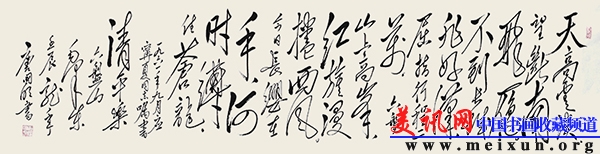 天高雲淡
望斷南
飛雁
不到長城
非好漢
屈指行程二
萬六盤
山上高峰
紅旗漫
捲西風
今日長纓在
手何
時縛
住蒼龍
一九六一年九月應
寧夏同志囑書
清平樂
六盤山
毛澤東
壬辰
美讯网
中国书画收藏频道
www.meixun.org